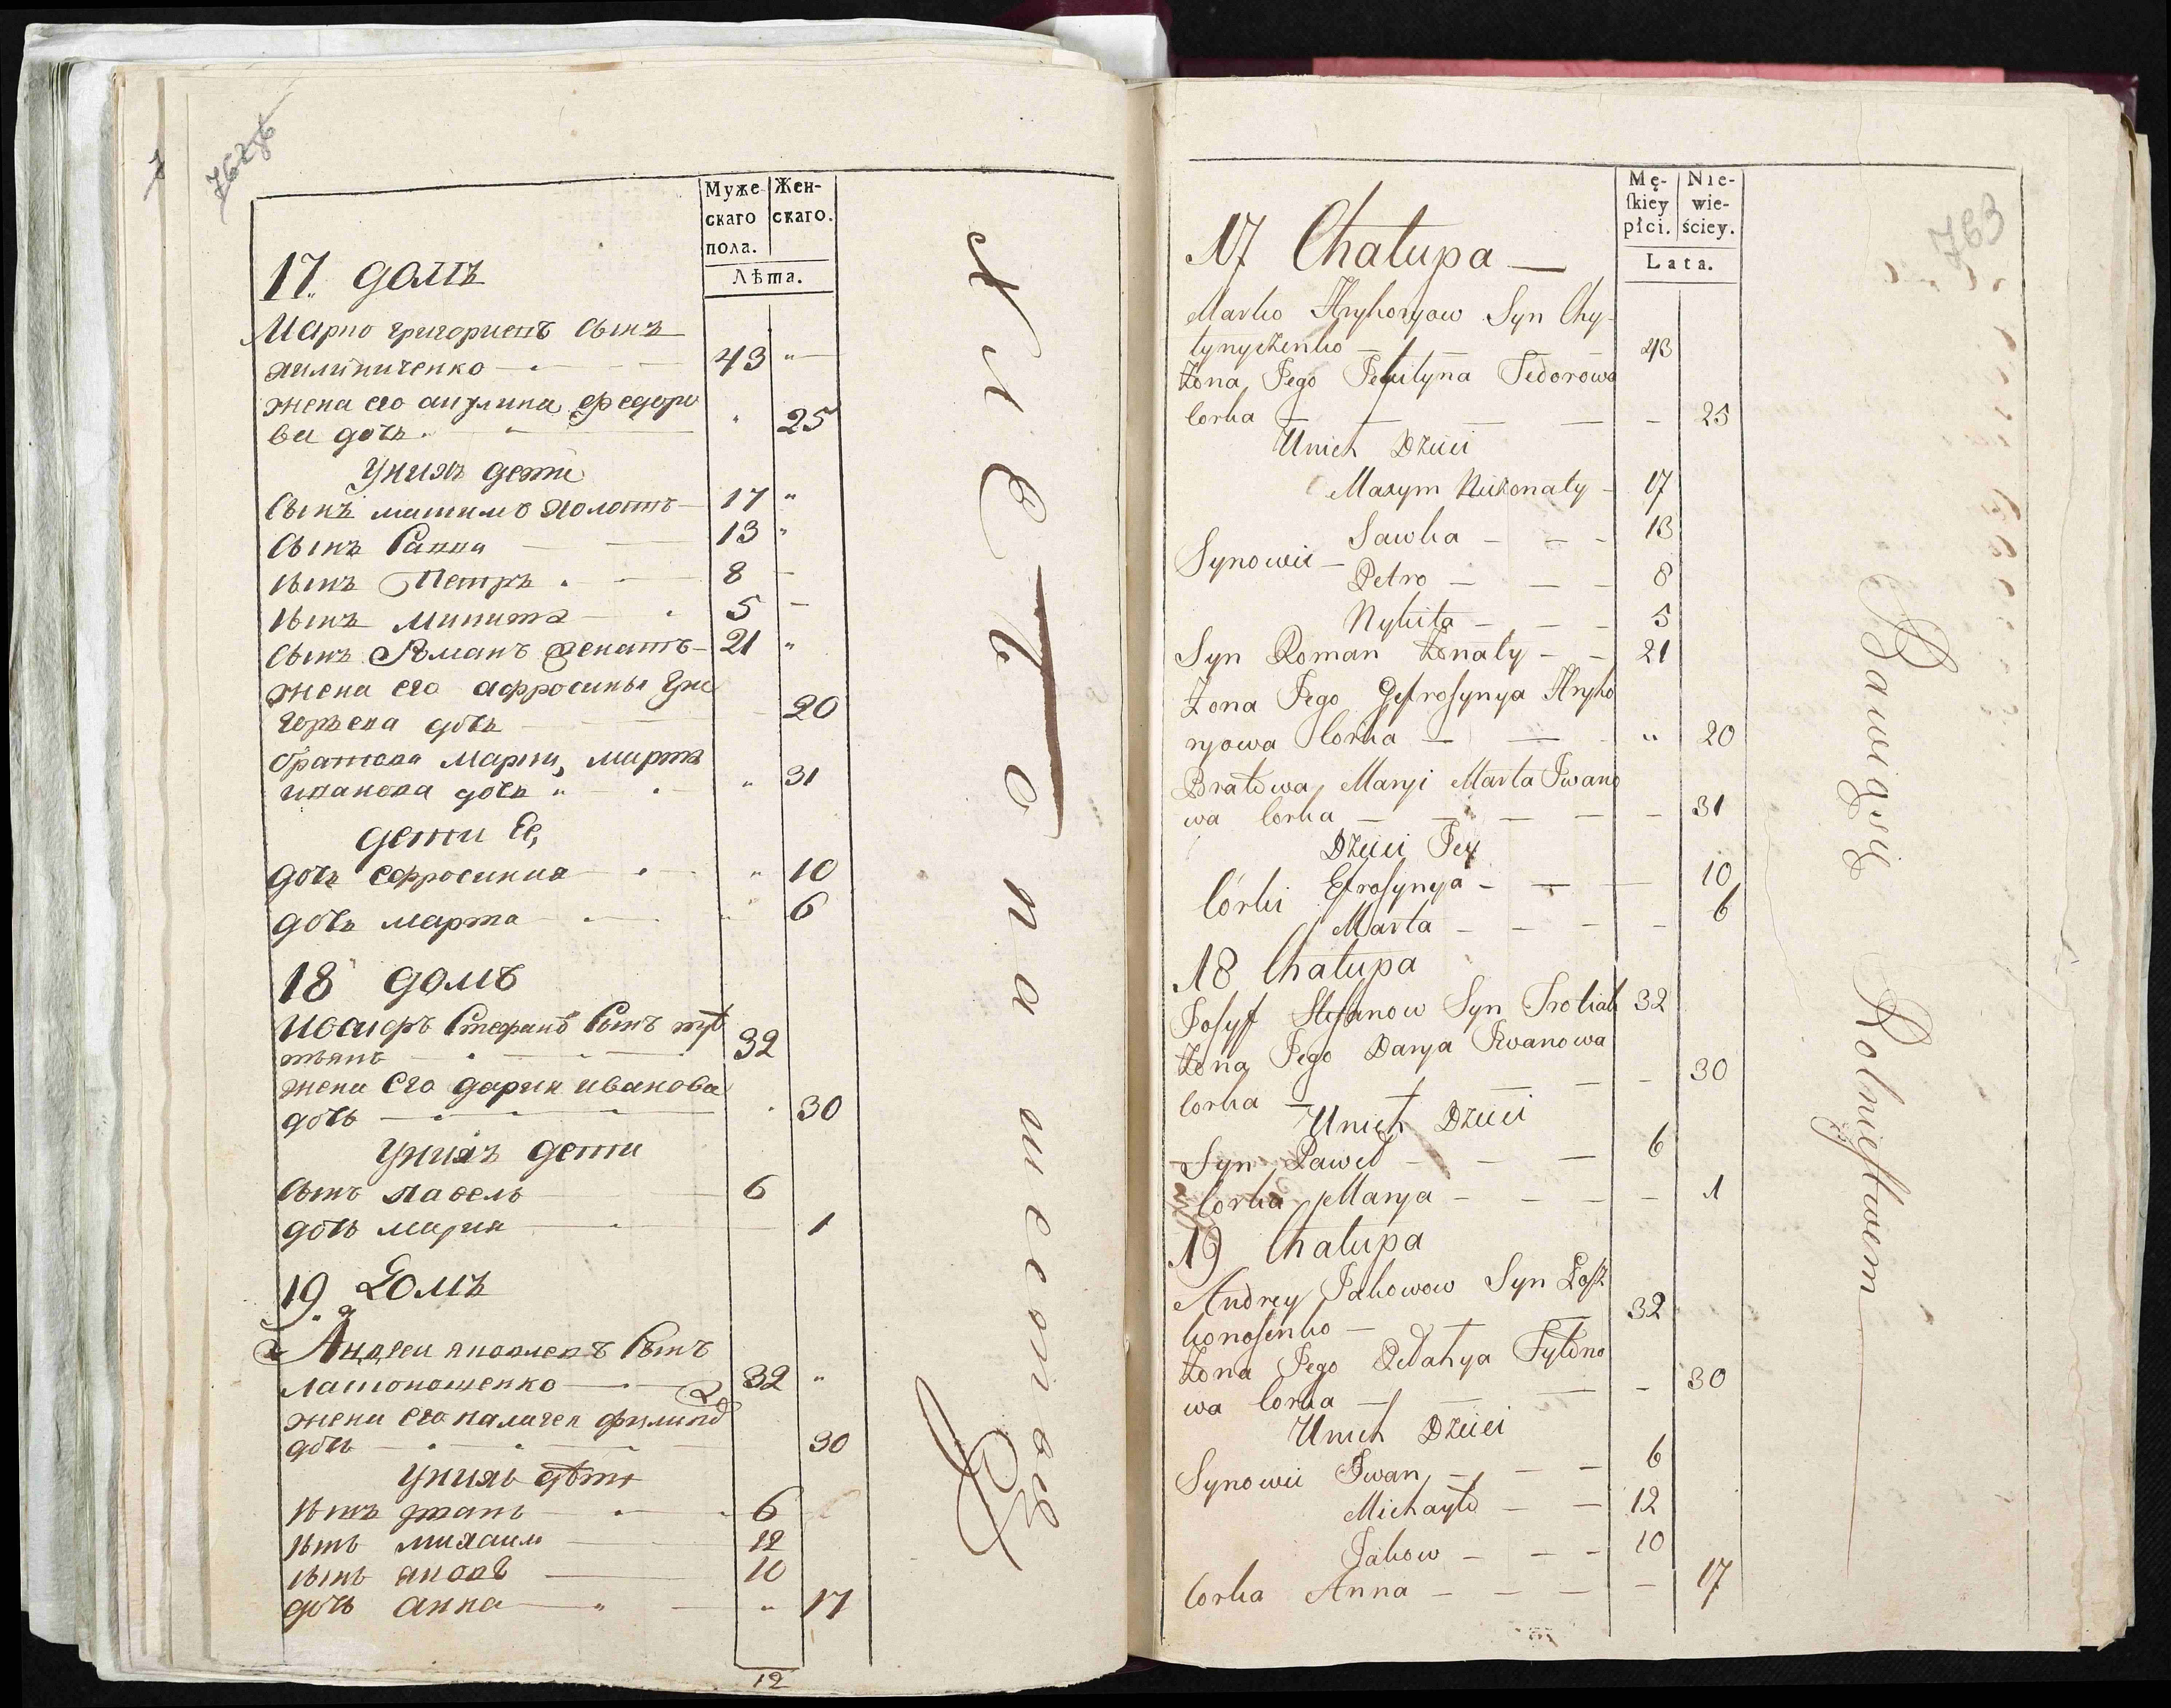 762
Муже-
скаго
пола.
Жен-
скаго.
Лѣта.
17. домъ
Марко григориевъ сынъ
хилиниченко 43 "
жена его акулина федоро
ва дочь " 25
Унихъ дети
Сынъ максимъ холостъ 17 "
Сынъ Савка 13 "
сынъ Петръ 8
сынъ микита 5
Сынъ Романъ женатъ 21 "
жена его афросинья гри
горьева дочь 20
братова марки, марта
иванова дочь " 31
дети Ее,
дочь ефросиния " 10
дочь марта " 6
18 домъ
Иосифъ Стефановъ Сынъ
32
жена Его дария иванова
дочь 30
Унихъ дети
Сынъ павелъ 6
дочь мария 1
19. Домъ
Андреи яковлевъ Сынъ
лашоношенко 32 "
жена Его палагея филипо
дочь 30
Унихъ дѣти
сынъ иванъ 6
сынъ михаилъ 12
сынъ яковъ 10
дочь анна " 17
12
763
Mę-
ſkiey
płci.
Nie-
wie-
ściey.
Lata.
17 Chałupa —
Marko Hryhoryow Syn Chy-
łynyczenko — 43
Żona Jego Jekulyna Fedorowa
Corka — 25
Unich Dzieci
Maxym Nieżonaty - 17
Sawka - 13
Synowie — Petro — 8
Nykita — 5
Syn Roman Żonaty - 21
Żona Jego Jefroſynya Hryho
ryowa Corka — " 20
Bratowa Maryi Marta Iwano
wa Corka — 31
Dzieci Jey
Córki Efroſynya - 10
Marta - 6
18 Chałupa
Joſyf Stefanow Syn 32
Żona Jego Darya Iwanowa
Corka — 30
Unich Dzieci
Syn Paweł — 6
Corka Marya - 1
19 Chałupa
Andrey Jakowow Syn Łoſz
konoſenko — 32
Żona Jego Pełahya Fyłono
wa Corka — 30
Unich Dzieci
Synowie Iwan — 6
Michayło — 12
Jakow — 10
Corka Anna — 17
Bawiący Rolnictwem